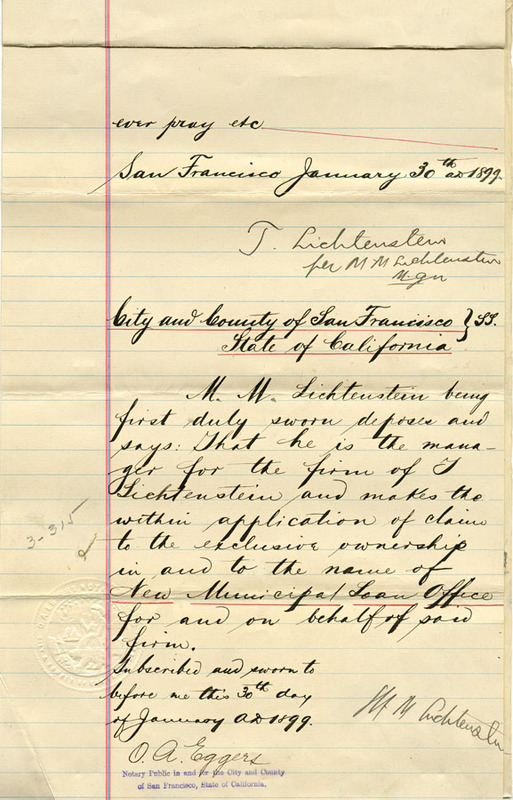 ever pray etc
San Francisco January 30th AD 1899.
T. Lichtenstein
per M M Lichtenstein
M-gr
City and County of San Francisco } SS.
State of California
M. M. Lichtenstein being
first duly sworn deposes and
says: That he is the mana-
ger for the firm of T
Lichtenstein and makes the
within application of claim
to the exclusive ownership
in and to the name of
New Municipal Loan Office
for and on behalf of said
firm.
3-315
Subscribed and sworn to
before me this 30th day
of January AD 1899.
M M Lichtenstein
O. A. Eggers
Notary Public in and for the City and County
of San Francisco, State of California.